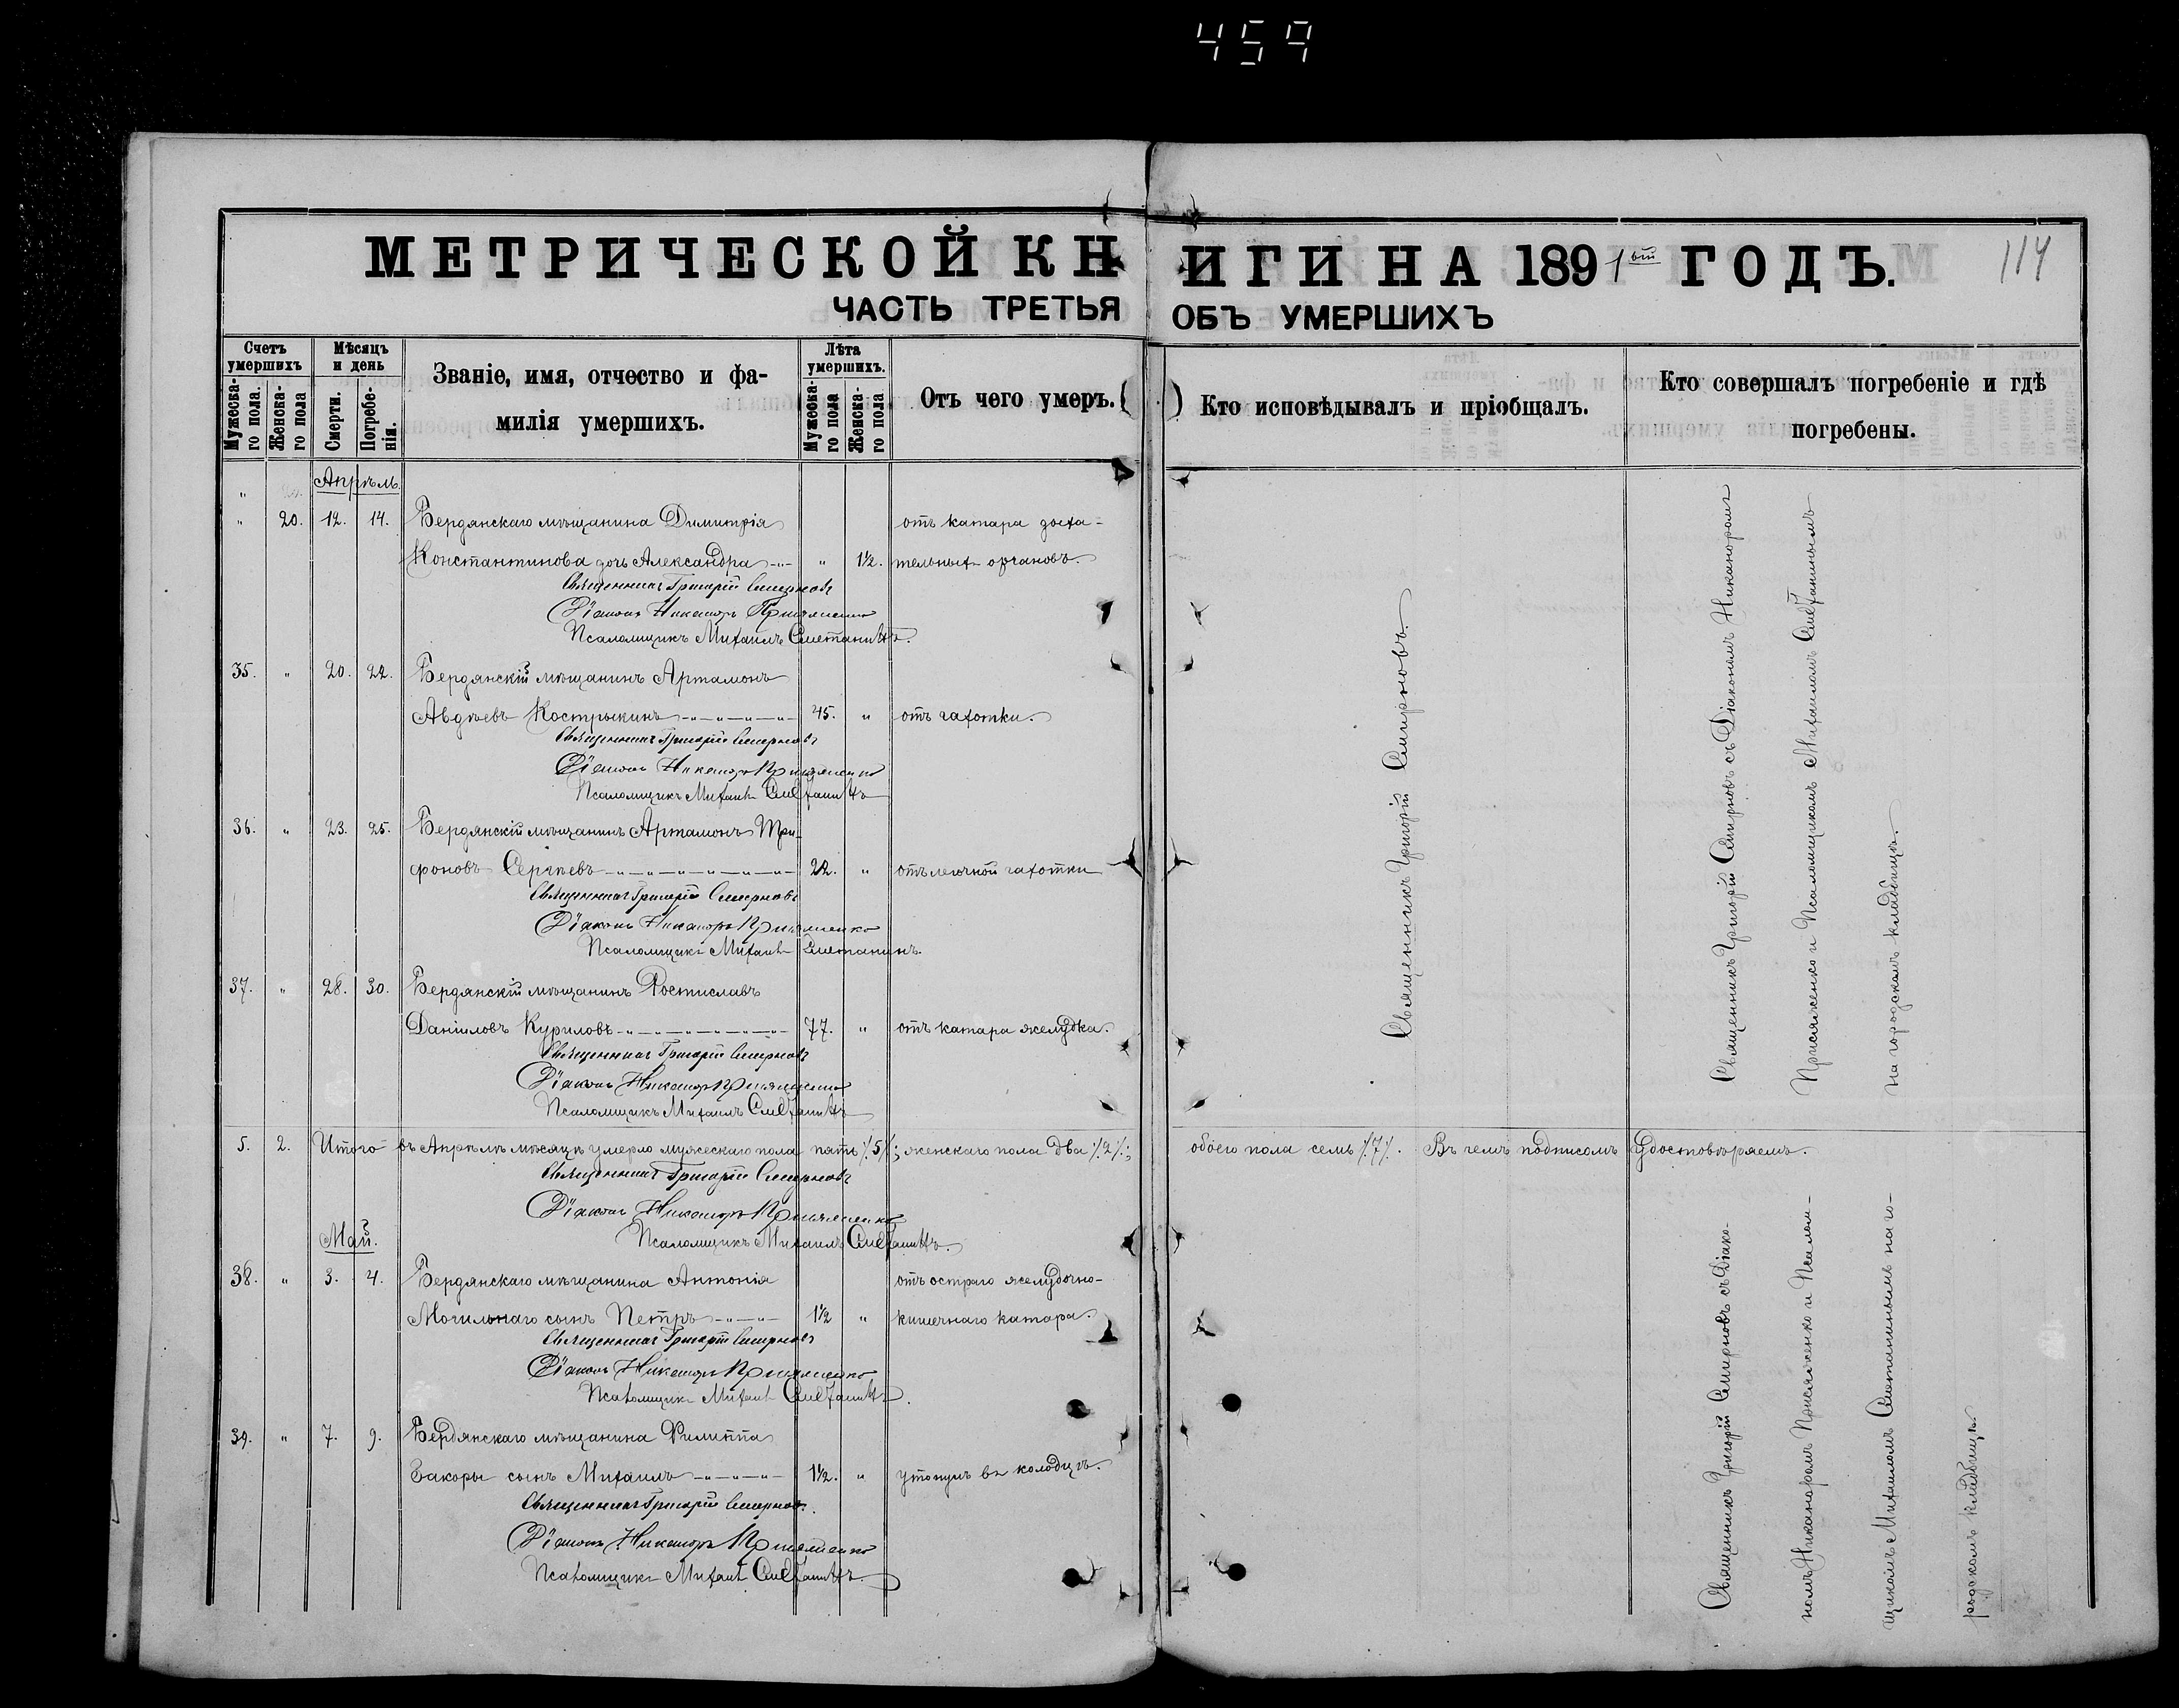 459
МЕТРИЧЕСКОЙ КНИГИ НА 1891 ГОДЪ.
114
ЧАСТЬ ТРЕТЬЯ ОБЪ УМЕРШИХЪ
Счетъ умершихъ
Мужеска-го пола.
Женска-го пола
Мѣсяцъ и день
Смерти.
Погребе-нія.
Званіе, имя, отчество и фа-
милія умершихъ.
Лѣта умершихъ.
Мужеска-го пола
Женска-го пола
Отъ чего умеръ.
Кто исповѣдывалъ и пріобщалъ.
Кто совершалъ погребеніе и гдѣ
погребены.
Апрѣль
" 20. 12. 14. Бердянскаго мѣщанина Димитрія отъ катара дыха-
Константинова дочь Александра " 1½. тельныхъ органовъ.
Священникъ Григорій Смирновъ
Діаконъ Никаноръ Присяженко
Псаломщикъ Михаилъ Сметанинъ.
35. " 20. 22. Бердянскій мѣщанинъ Артамонъ
Авдѣевъ Кострыкинъ 45. " отъ чахотки.
Священникъ Григорій Смирновъ
Діаконъ Никаноръ Присяженко
Псаломщикъ Михаилъ Сметанинъ
36. " 23. 25. Бердянскій мѣщанинъ Артамонъ Три-
фоновъ Сергѣевъ 22. " отъ легочной чахотки
Священникъ Григорій Смирновъ
Діаконъ Никаноръ Присяженко
Псаломщикъ Михаилъ Сметанинъ.
37. " 28. 30. Бердянскій мѣщанинъ Ростиславъ
Даніиловъ Куриловъ 77. " отъ катара желудка.
Священникъ Григорій Смирновъ
Діаконъ Никаноръ Присяженко
Псаломщикъ Михаилъ Сметанинъ
Священникъ Григорій Смирновъ.
Священникъ Григорій Смирновъ съ Діакономъ Никаноромъ
Присяженко и Псаломщикомъ Михаиломъ Сметанинымъ
на городскомъ кладбищѣ.
5. 2. Итого въ Апрѣлѣ мѣсяцѣ умерло мужескаго пола пять /.5/.; женскаго пола два /.2/.; обоего пола семь /.7/. Въ чемъ подписомъ удостовѣряемъ.
Священникъ Григорій Смирновъ
Діаконъ Никаноръ Присяженко
Псаломщикъ Михаилъ Сметанинъ.
Май.
38. " 3. 4. Бердянскаго мѣщанина Антонія отъ остраго желудочно-
Могильнаго сынъ Петръ 1½ " кишечнаго катара.
Священникъ Григорій Смирновъ
Діаконъ Никаноръ Присяженко
Псаломщикъ Михаилъ Сметанинъ.
39. " 7. 9. Бердянскаго мѣщанина Филиппа
Закоры сынъ Михаилъ 1½. " утонулъ въ колодцѣ.
Священникъ Григорій Смирновъ.
Діаконъ Никаноръ Присяженко
Псаломщикъ Михаилъ Сметанинъ.
Священникъ Григорій Смирновъ съ Діако-
номъ Никаноромъ Присяженко и Псалом-
щикомъ Михаиломъ Сметанинымъ на го-
родскомъ кладбищѣ.